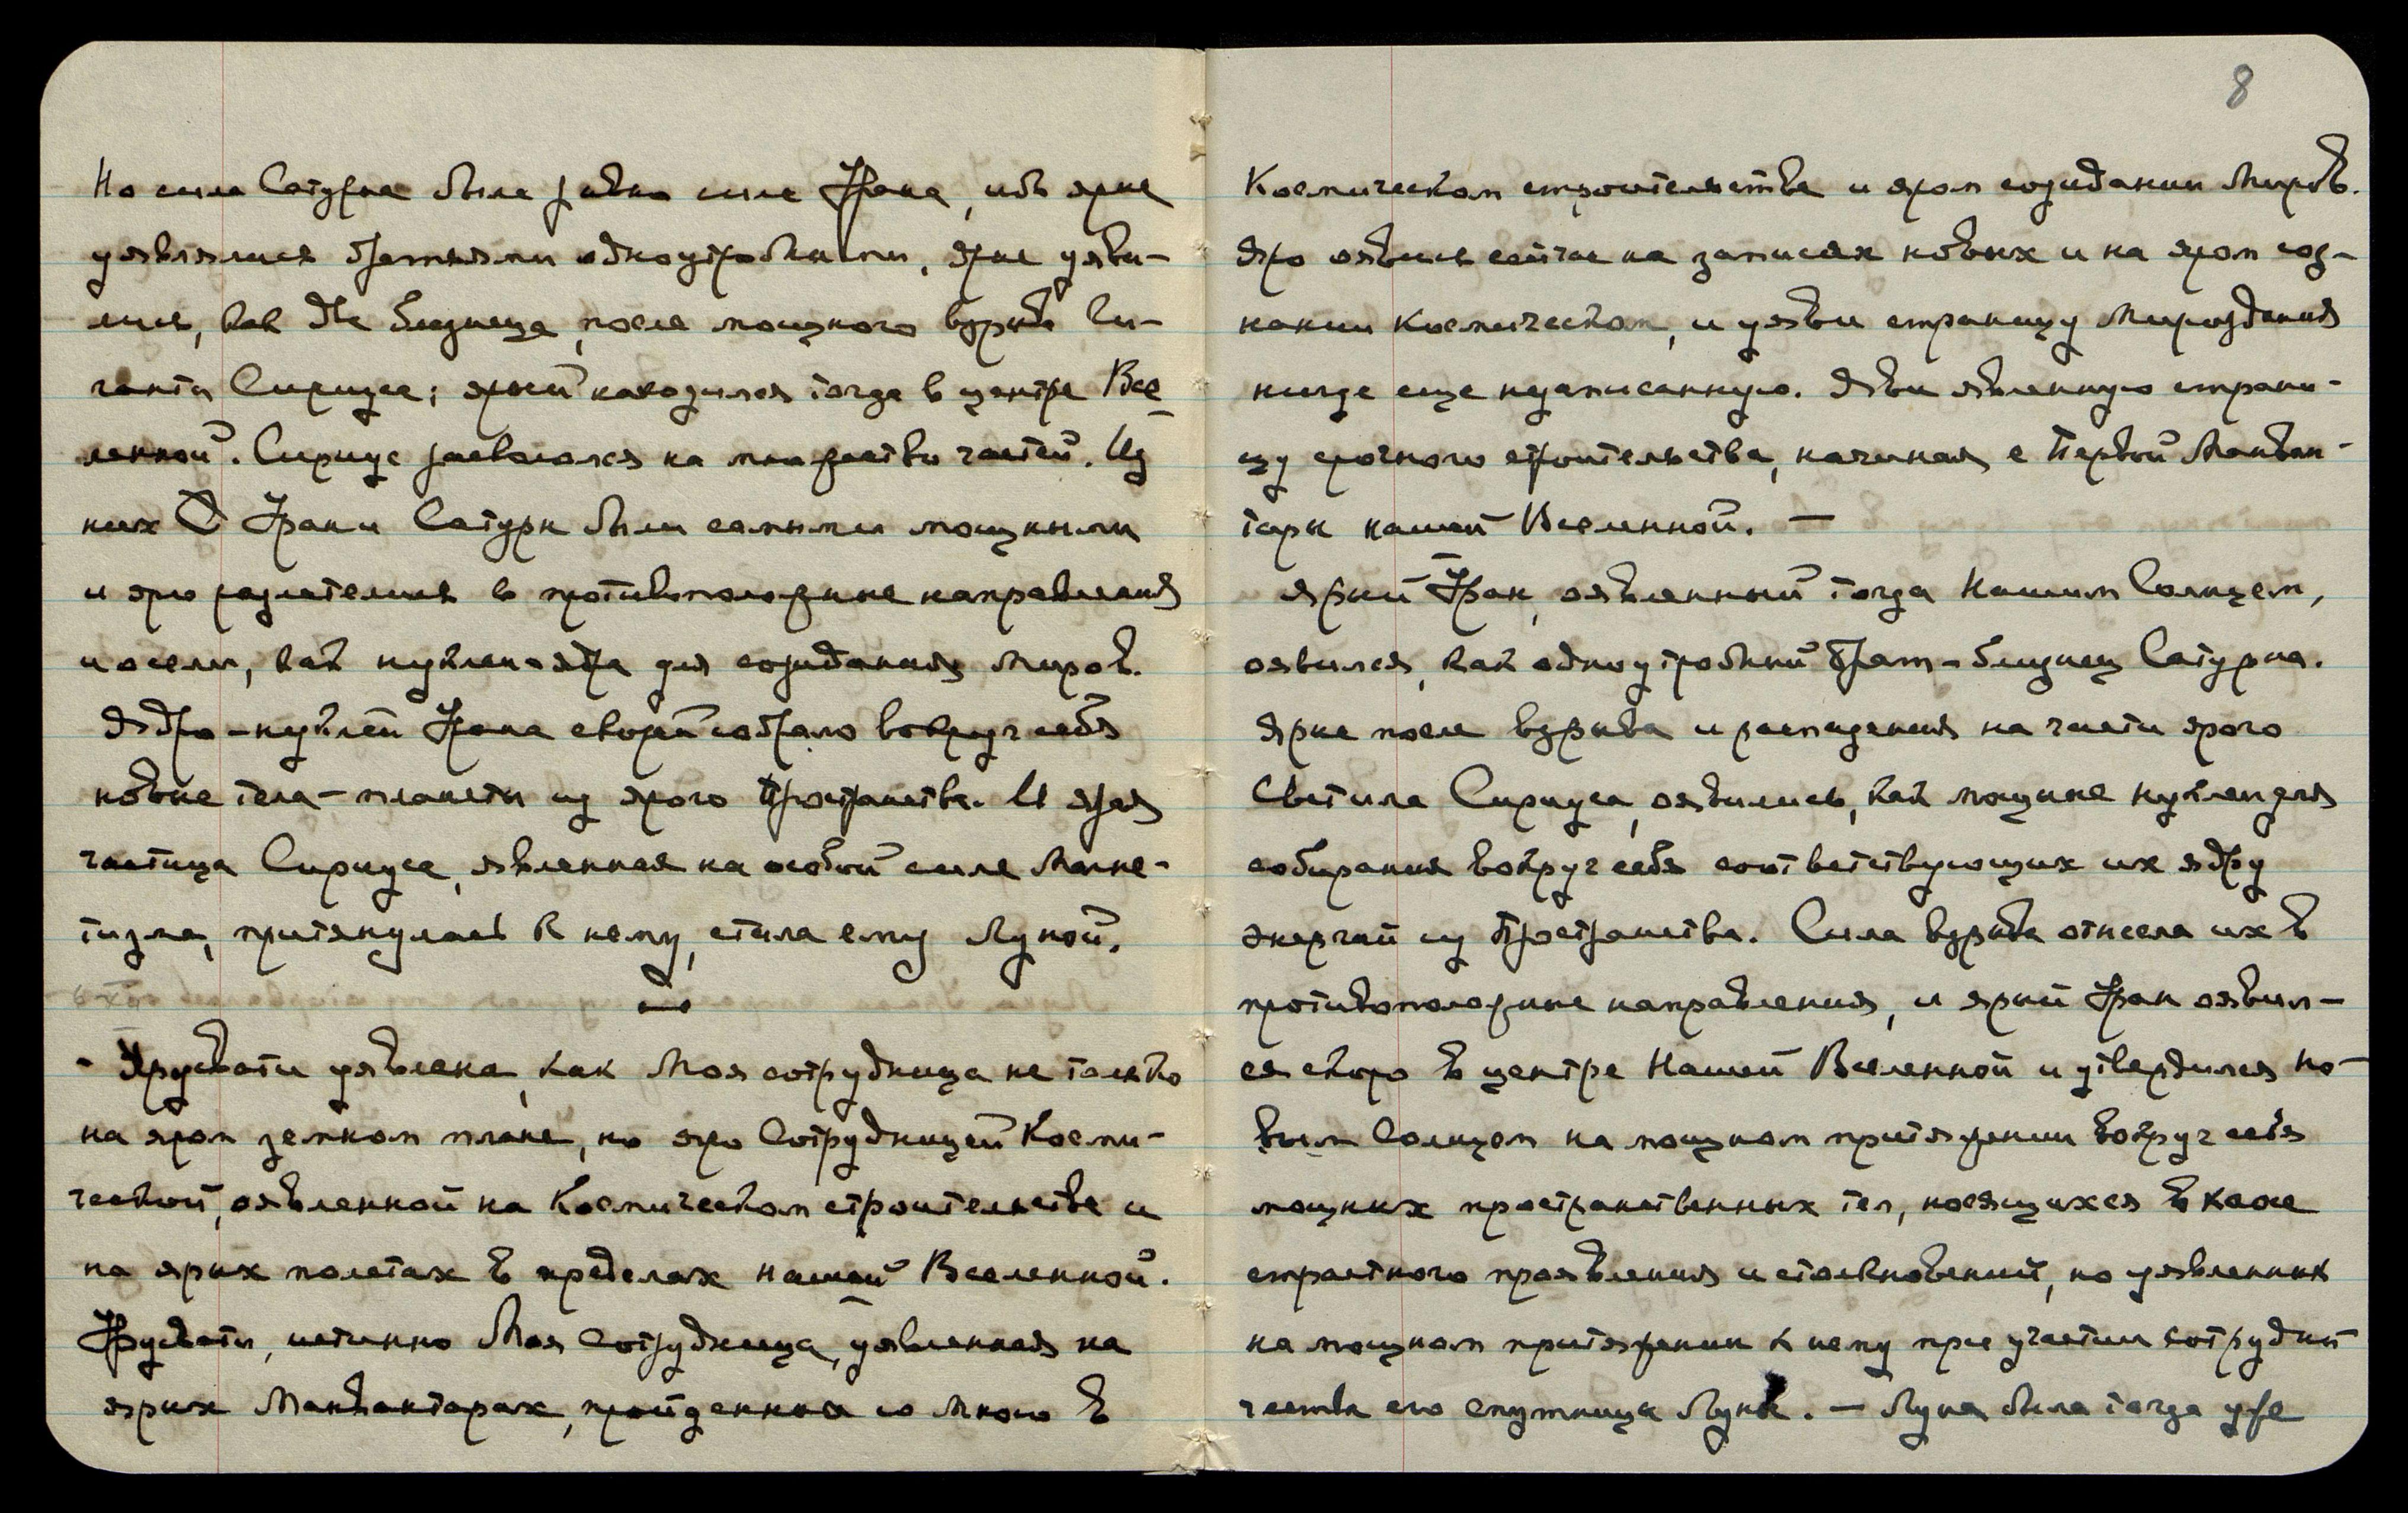 Но сила Сатурна была равна силе Урана, ибо ярые
уявлялись братьями одноутробными, ярые уяви-
лись, как два близнеца, после мощного взрыва Ги-
ганта Сириуса; ярый находился тогда в центре Все-
ленной. Сириус распался на множество частей. Из
них Уран и Сатурн были самыми мощными
и яро разлетелись в противоположные направления
и осели, как нуклеи-ядра для созидания Миров.
Ядро-нуклей Урана скорей собрало вокруг себя
новые тела-планеты из ярого Пространства. И ярая
частица Сириуса, явленная на особой силе Магне-
тизма, притянулась к нему, стала ему Луной.
- Урусвати уявлена, как Моя сотрудница не только
на яром земном плане, но яро Сотрудницей Косми-
ческой, оявленной на Космическом строительстве и
на ярых полетах в пределах нашей Вселенной.
Урусвати, истинно Моя Сотрудница, уявленная на
ярых Манвантарах, пройденных со Мною в
8
Космическом строительстве и яром созидании Миров.
Яро оявись сейчас на записях новых и на яром соз-
нании Космическом, и уяви страницу Мироздания
нигде еще незаписанную. Яви явленную страни-
цу срочного строительства, начиная с Первой Манван-
тары нашей Вселенной. —
Ярый Уран, оявленный тогда Нашим Солнцем,
оявился, как одноутробный брат-близнец Сатурна.
Ярые после взрыва и распадения на части ярого
Светила Сириуса, оявились, как мощные нуклеи для
собирания вокруг себя соответствующих их ядру
энергий из Пространства. Сила взрыва отнесла их в
противоположные направления, и ярый Уран оявил-
ся скоро в центре Нашей Вселенной и утвердился но-
вым Солнцем на мощном притяжении вокруг себя
мощных пространственных тел, носящихся в Хаосе
страстного проявления и столкновений, но уявленных
на мощном притяжении к нему при участии сотрудни-
чества его спутницы Луны. — Луна была тогда уже